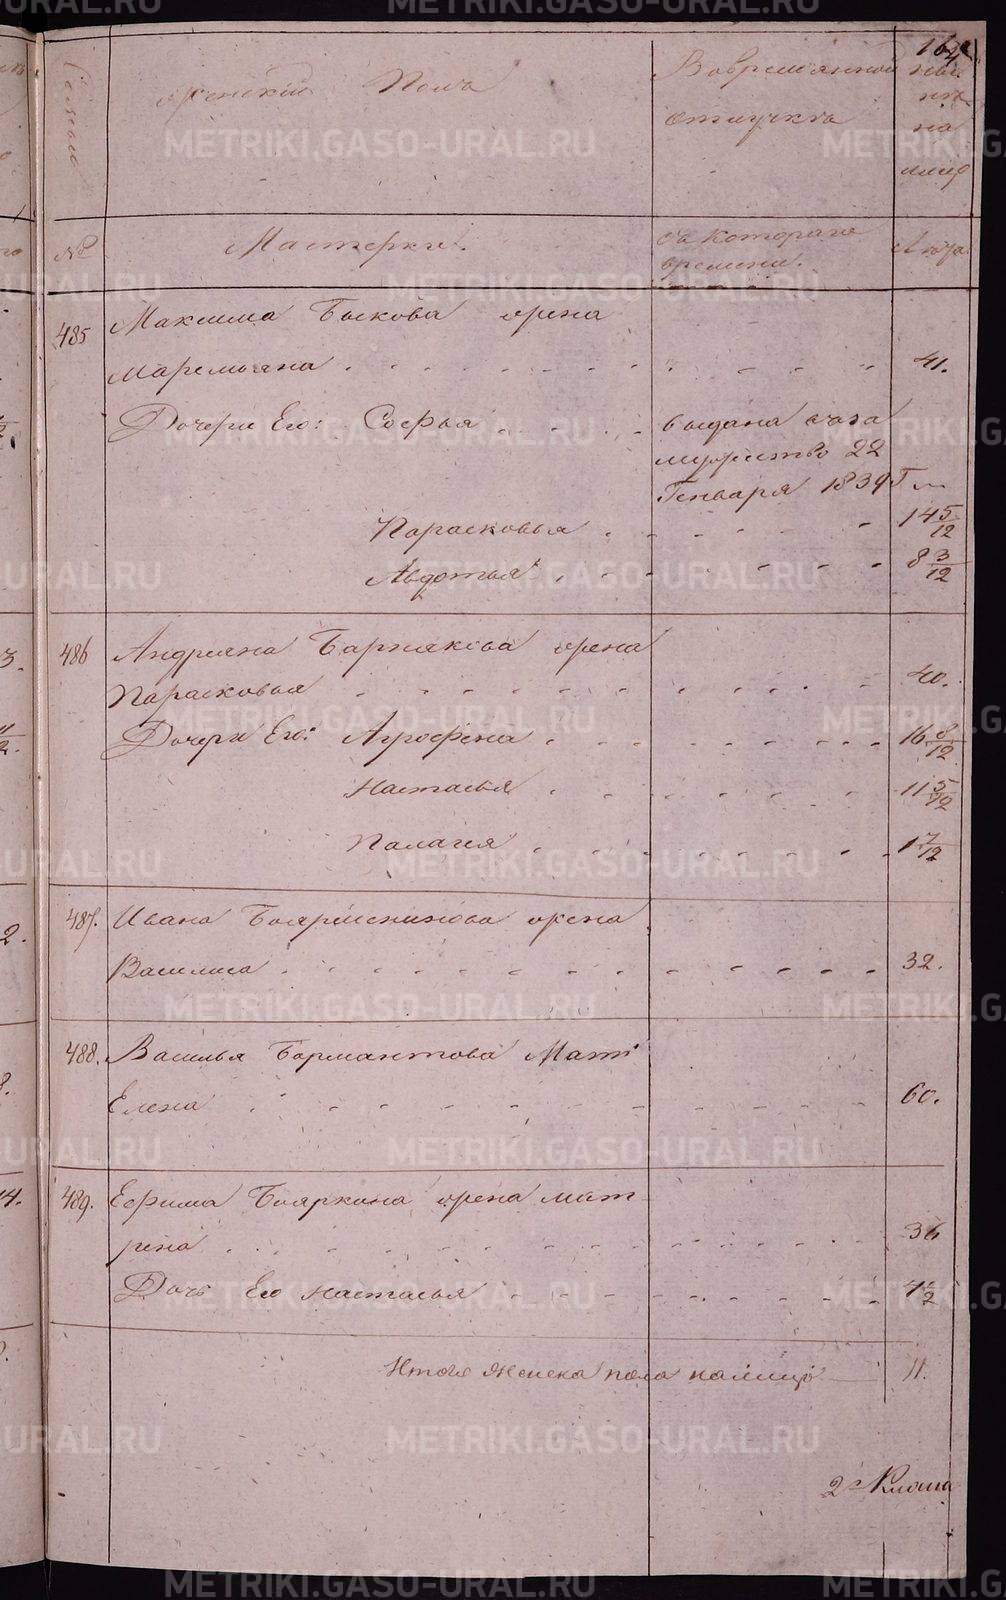 164
Семьи
Женский Полъ
Вовременной
отлучкѣ
ныне
на
лицо
№
Мастерки.
съ котораго
времени.
Лѣта
485
Максима Быкова жена
Маремьяна 41.
Дочери Его: Софья выдана въ за
мужество 22
Генваря 1839 Г
Парасковья 14 5/12
Авдотья 8 3/12
486
Андреяна Барнякова жена
Парасковья 40.
Дочери Его: Агрофена 16 8/12
Настасья 11 5/12
Палагея 1 7/12
487.
Ивана Бояршенинова жена
Василиса 32.
488.
Василья Бармантова Мать
Елена 60.
489.
Ефима Бояркина жена мат
рена 36
Дочь Его Настасья 4 1/2
Итого женска пола налицо 11.
METRIKI.GASO-URAL.RU